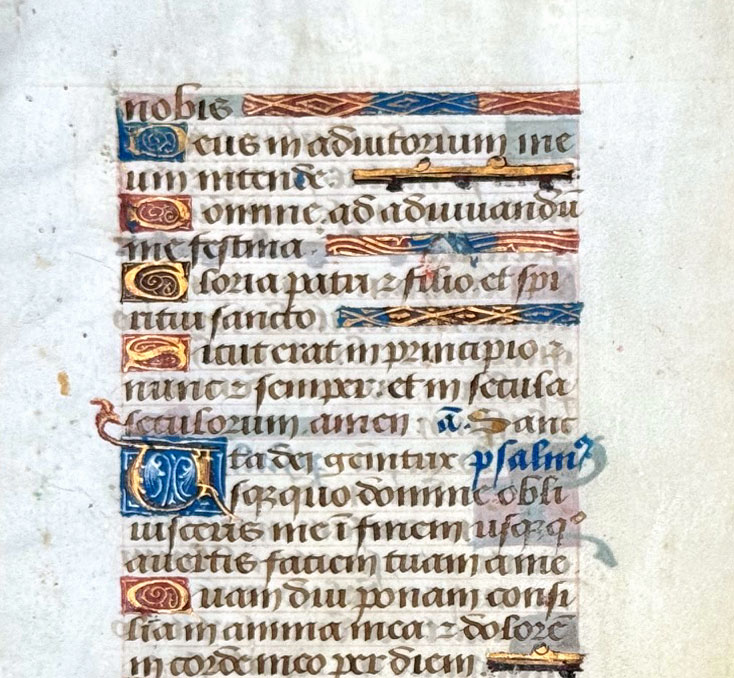 nobis
Deus in adiutorium me
um intende.
Domine ad adiuuandū
me festina.
Gloria patri ⁊ filio et spi
ritui sancto
Sicut erat in principio ⁊
nunc ⁊ semper: et in secula
seculorum amen ā. Sanc
ta dei genitrix psalmꝰ
Usqꝫ quo domine obli
uisceris me ī finem usqꝫ qͦ
auertis faciem tuam a me
Quam diu ponam consi
lia in anima mea ⁊ dolorē
in corde meo per diem